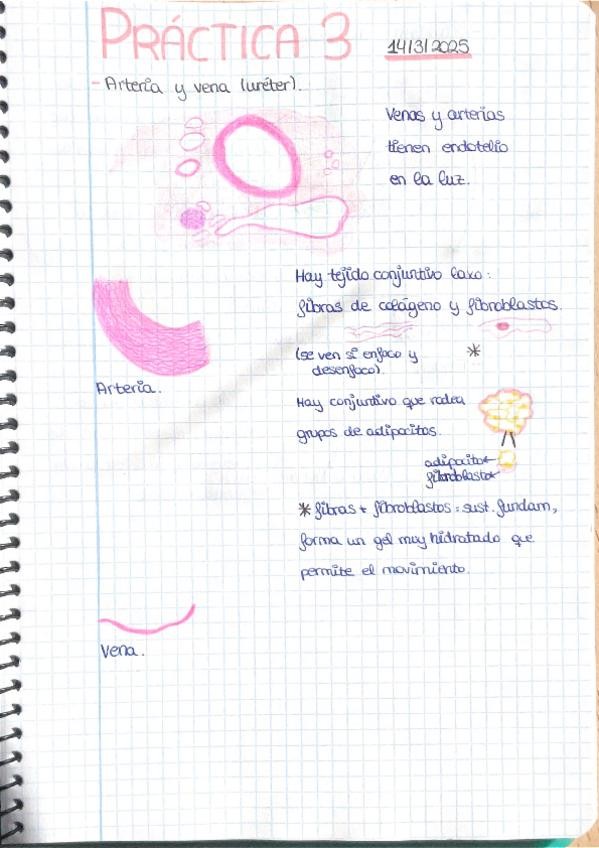 PRÁCTICA 3
14/3/2025
- Arteria y vena (uréter).
Venas y arterias
tienen endotelio
en la luz.
Hay tejido conjuntivo laxo:
fibras de colágeno y fibroblastos.
(se ven si enfoco y
desenfoco).
*
Arteria.
Hay conjuntivo que rodea
grupos de adipocitos.
adipocito
fibroblasto
* fibras + fibroblastos = sust. fundam,
forma un gel muy hidratado que
permite el movimiento.
Vena.